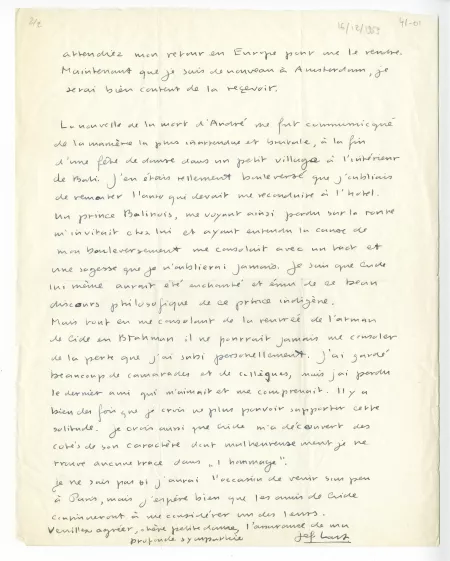 2/2 16/12/1959
attendiez mon retour en Europe pour me le rendre.
Maintenant que je suis de nouveau à Amsterdam, je
serai bien content de la reçevoir.
La nouvelle de la mort d'André me fut communiqué
de la manière la plus inattendue et brutale, à la fin
d'une fête de danse dans un petit village à l'intérieur
de Bali. J'en étais tellement bouleversé que j'oubliais
de remonter l'auto qui devait me reconduire à l'hotel.
Un prince Balinais, me voyant ainsi perdu sur la route
m'invitait chez lui et ayant entendu la cause de
mon bouleversement me consolait avec un tact et
une sagesse que je n'oublierai jamais. Je sais que Gide
lui même aurait été enchanté et émus de ce beau
discours philosofique de ce prince indigène.
Mais tout en me consolant de la rentrée de l'atman
de Gide en Brahman il ne pourrait jamais me consoler
de la perte que j'ai subi personellement. J'ai gardé
beaucoup de camarades et de collègues, mais j'ai perdu
le dernier ami qui m'aimait et me comprenait. Il y a
bien des fois que je crois ne plus pouvoir supporter cette
solitude. Je crois aussi que Gide m'a découvert des
cotés de son caractère dont malheureusement je ne
trouve aucune trace dans „l'hommage".
Je ne sais pas si j'aurai l'occasion de venir sous peu
à Paris, mais j'espère bien que les amis de Gide
continueront à me considérer un des leurs.
Veuillez agréer, chère petite dame, l'assurance de ma
profonde sympathie Jef Last